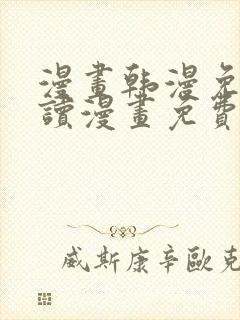 漫畫韩漫免
讀漫畫免費
威斯康辛歐克